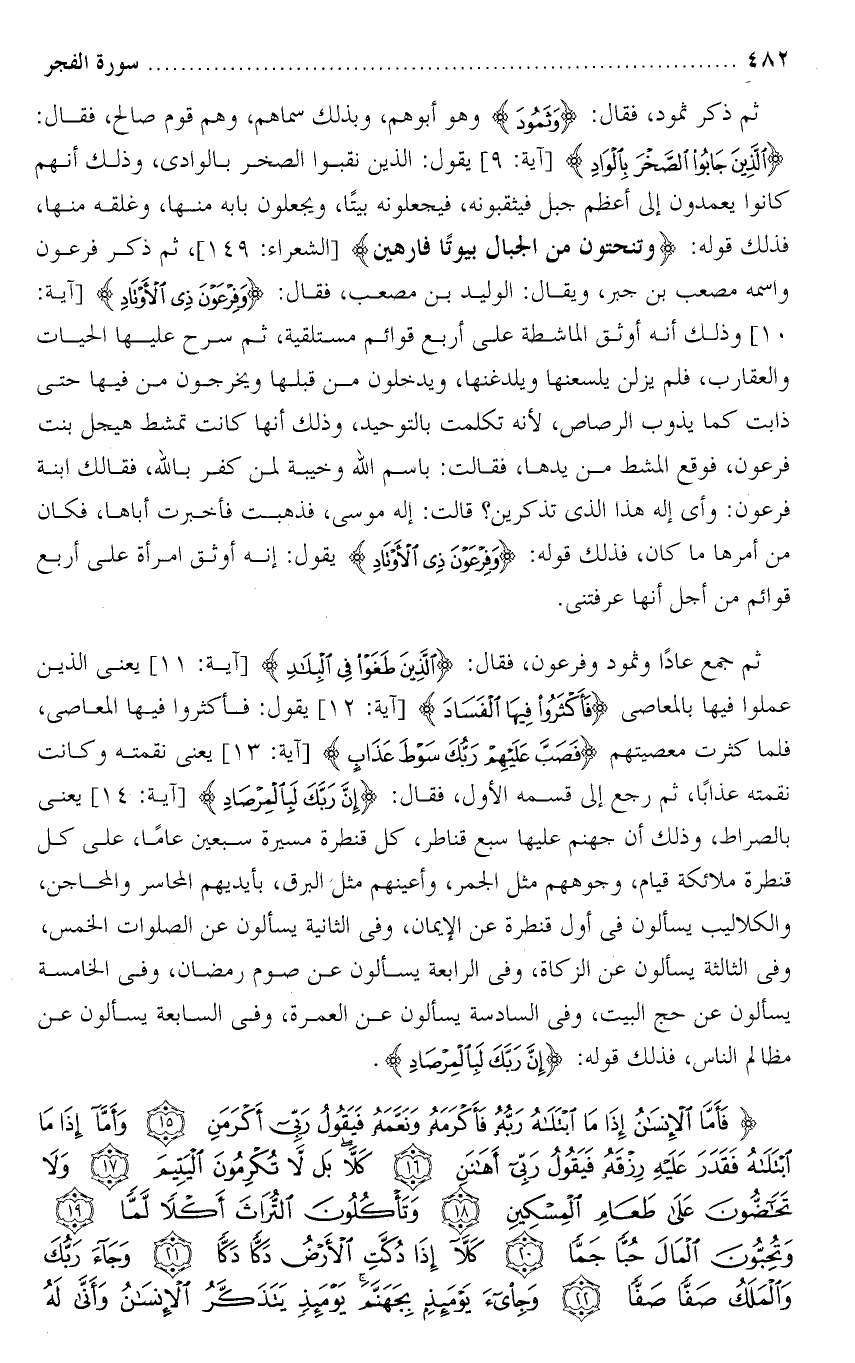 ٤٨٢ ........................................................................ سورة الفجر
ثم ذكر ثمود، فقال: ﴿وَثَمُودَ﴾ وهو أبوهم، وبذلك سماهم، وهم قوم صالح، فقال:
﴿ٱلَّذِينَ جَابُوا۟ ٱلصَّخْرَ بِٱلْوَادِ﴾ [آية: ٩] يقول: الذين نقبوا الصخر بالوادى، وذلك أنهم
كانوا يعمدون إلى أعظم جبل فيثقبونه، فيجعلونه بيتًا، ويجعلون بابه منها، وغلقه منها،
فذلك قوله: ﴿وتنحتون من الجبال بيوتًا فارهين﴾ [الشعراء: ١٤٩]، ثم ذكر فرعون
واسمه مصعب بن جبر، ويقال: الوليد بن مصعب، فقال: ﴿وَفِرْعَوْنَ ذِى ٱلْأَوْتَادِ﴾ [آية:
١٠] وذلك أنه أوثق الماشطة على أربع قوائم مستلقية، ثم سرح عليها الحيات
والعقارب، فلم يزلن يلسعنها ويلدغنها، ويدخلون من قبلها ويخرجون من فيها حتى
ذابت كما يذوب الرصاص، لأنه تكلمت بالتوحيد، وذلك أنها كانت تمشط هيجل بنت
فرعون، فوقع المشط من يدها، فقالت: باسم الله وخيبة لمن كفر بالله، فقالك ابنة
فرعون: وأى إله هذا الذى تذكرين؟ قالت: إله موسى، فذهبت فأخبرت أباها، فكان
من أمرها ما كان، فذلك قوله: ﴿وَفِرْعَوْنَ ذِى ٱلْأَوْتَادِ﴾ يقول: إنه أوثق امرأة على أربع
قوائم من أجل أنها عرفتنى.
ثم جمع عادًا وثمود وفرعون، فقال: ﴿ٱلَّذِينَ طَغَوْا۟ فِى ٱلْبِلَٰدِ﴾ [آية: ١١] يعنى الذين
عملوا فيها بالمعاصى ﴿فَأَكْثَرُوا۟ فِيهَا ٱلْفَسَادَ﴾ [آية: ١٢] يقول: فأكثروا فيها المعاصى،
فلما كثرت معصيتهم ﴿فَصَبَّ عَلَيْهِمْ رَبُّكَ سَوْطَ عَذَابٍ﴾ [آية: ١٣] يعنى نقمته وكانت
نقمته عذابًا، ثم رجع إلى قسمه الأول، فقال: ﴿إِنَّ رَبَّكَ لَبِٱلْمِرْصَادِ﴾ [آية: ١٤] يعنى
بالصراط، وذلك أن جهنم عليها سبع قناطر، كل قنطرة مسيرة سبعين عامًا، على كل
قنطرة ملائكة قيام، وجوههم مثل الجمر، وأعينهم مثل البرق، بأيديهم المحاسر والمحاجن،
والكلاليب يسألون فى أول قنطرة عن الإيمان، وفى الثانية يسألون عن الصلوات الخمس،
وفى الثالثة يسألون عن الزكاة، وفى الرابعة يسألون عن صوم رمضان، وفى الخامسة
يسألون عن حج البيت، وفى السادسة يسألون عن العمرة، وفى السابعة يسألون عن
مظالم الناس، فذلك قوله: ﴿إِنَّ رَبَّكَ لَبِٱلْمِرْصَادِ﴾.
﴿فَأَمَّا ٱلْإِنسَٰنُ إِذَا مَا ٱبْتَلَىٰهُ رَبُّهُۥ فَأَكْرَمَهُۥ وَنَعَّمَهُۥ فَيَقُولُ رَبِّىٓ أَكْرَمَنِ ١٥ وَأَمَّآ إِذَا مَا
ٱبْتَلَىٰهُ فَقَدَرَ عَلَيْهِ رِزْقَهُۥ فَيَقُولُ رَبِّىٓ أَهَٰنَنِ ١٦ كَلَّا ۖ بَل لَّا تُكْرِمُونَ ٱلْيَتِيمَ ١٧ وَلَا
تَحَٰٓضُّونَ عَلَىٰ طَعَامِ ٱلْمِسْكِينِ ١٨ وَتَأْكُلُونَ ٱلتُّرَاثَ أَكْلًا لَّمًّا ١٩
وَتُحِبُّونَ ٱلْمَالَ حُبًّا جَمًّا ٢٠ كَلَّآ إِذَا دُكَّتِ ٱلْأَرْضُ دَكًّا دَكًّا ٢١ وَجَآءَ رَبُّكَ
وَٱلْمَلَكُ صَفًّا صَفًّا ٢٢ وَجِا۟ىٓءَ يَوْمَئِذٍۭ بِجَهَنَّمَ ۚ يَوْمَئِذٍ يَتَذَكَّرُ ٱلْإِنسَٰنُ وَأَنَّىٰ لَهُ